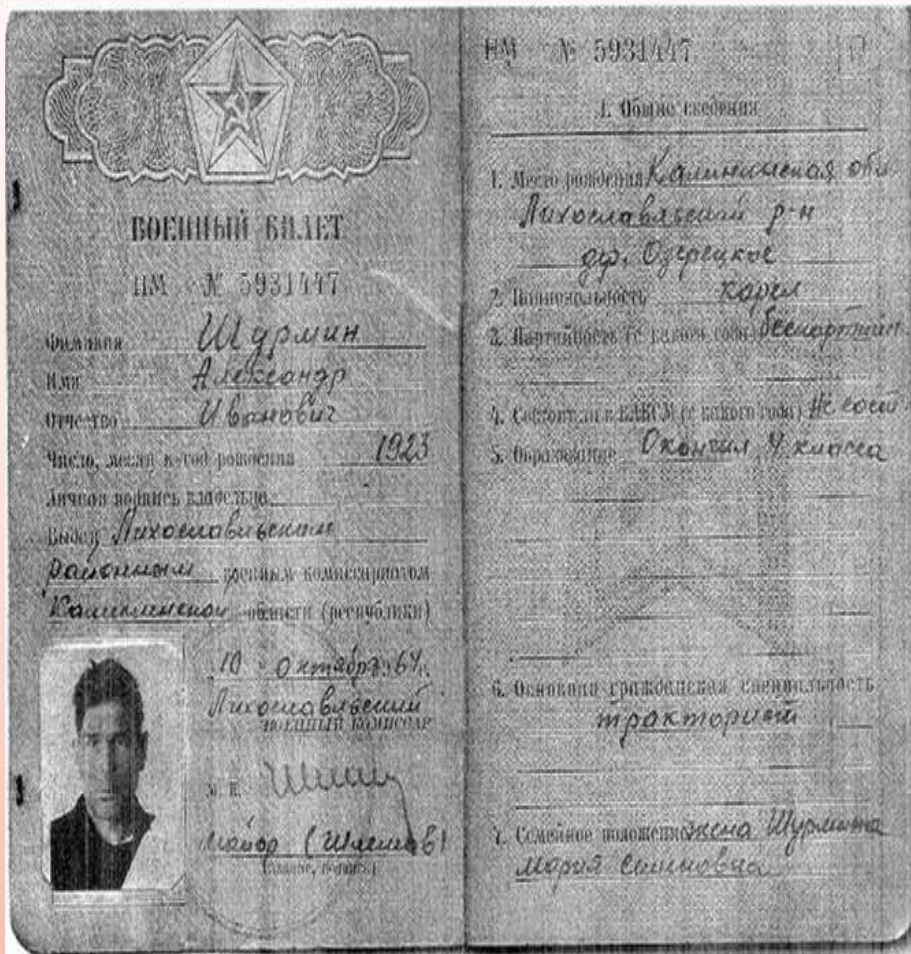 ВОЕННЫЙ БИЛЕТ
НМ № 5931447
Фамилия Шурмин
Имя Александр
Отчество Иванович
Число, месяц и год рождения 1923
Личная подпись владельца
Выдан Лихославльским
районным военным комиссариатом
Калининской области (республики)
10 октября 64 г.
Лихославльский
ВОЕННЫЙ КОМИССАР
М. П.
майор
НМ № 5931447
I. Общие сведения
1. Место рождения Калининская обл.
Лихославльский р-н
дер. Озерецкое
2. Национальность карел
3. Партийность (с какого года) беспартийн
4. Состоял ли в ВЛКСМ (с какого года) Не сост
5. Образование Окончил 4 класса
6. Основная гражданская специальность
тракторист
7. Семейное положение жена Шурмина
Мария